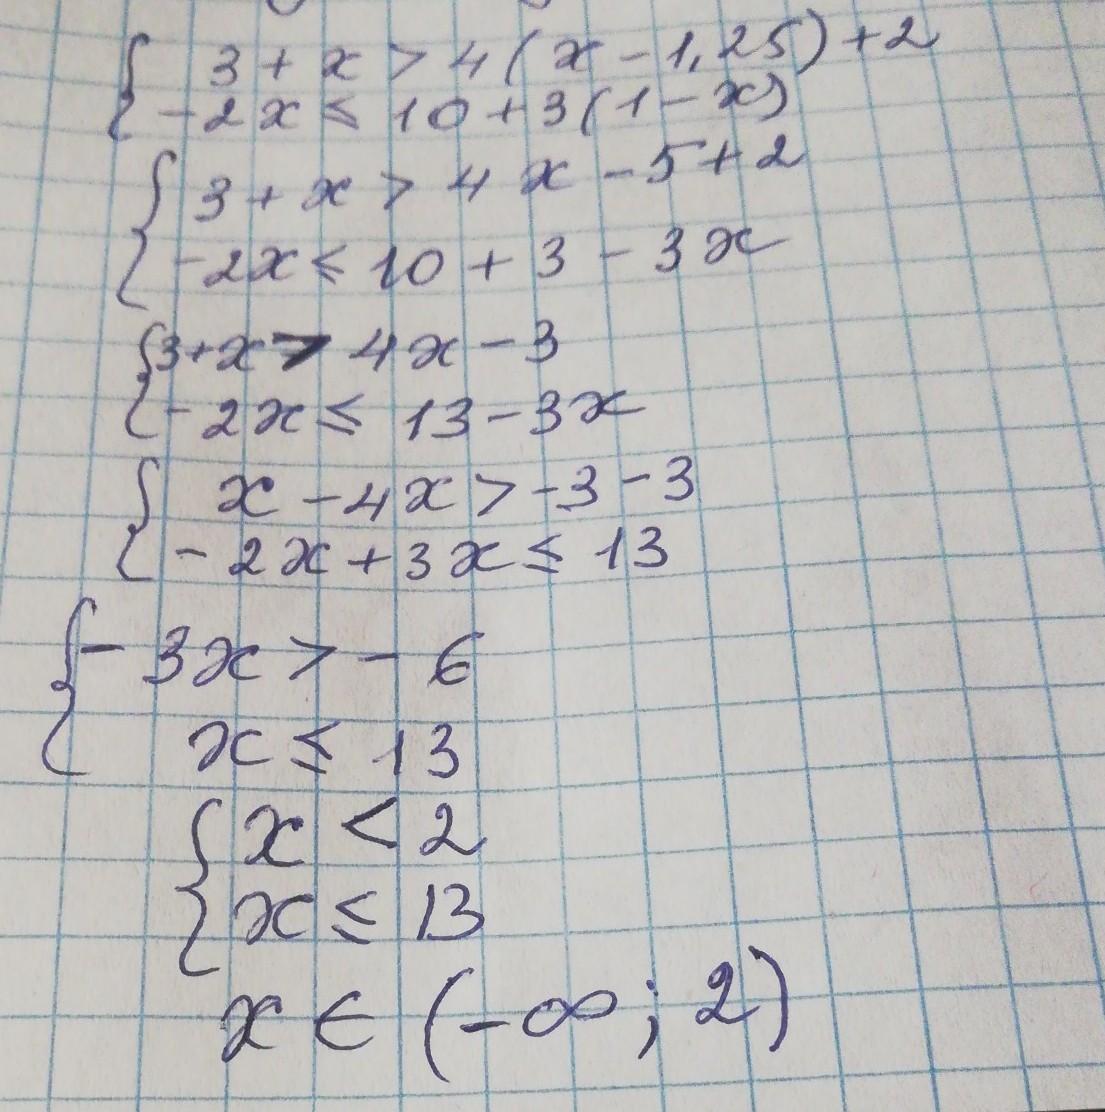 { 3 + x > 4(x - 1,25) + 2
-2x ≤ 10 + 3(1 - x)
{ 3 + x > 4x - 5 + 2
-2x ≤ 10 + 3 - 3x
{ 3 + x > 4x - 3
-2x ≤ 13 - 3x
{ x - 4x > -3 - 3
-2x + 3x ≤ 13
{ -3x > -6
x ≤ 13
{ x < 2
x ≤ 13
x ∈ (-∞; 2)